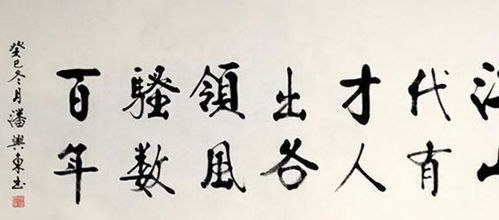 江山
代有
才人
出各
領風
騷數
百年
癸巳冬月潘興東书